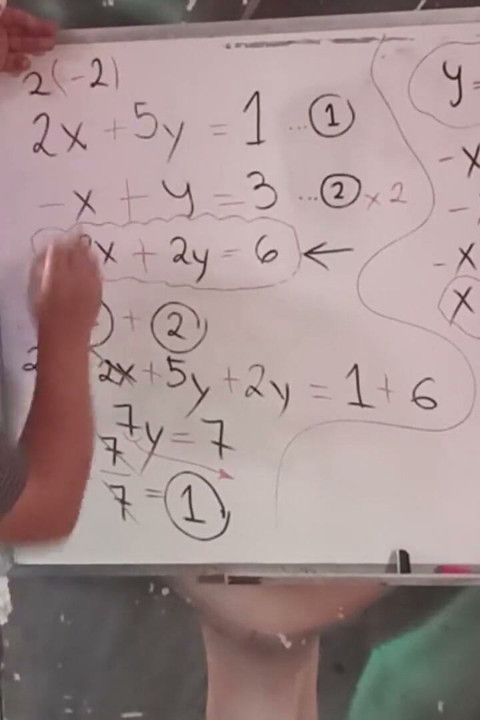 2(-2)
2x + 5y = 1 ... ①
-x + y = 3 ... ② x 2
x + 2y = 6 ←
+ ②
2x + 5y + 2y = 1 + 6
7y = 7
7
7 = ①
y =
-x
-
-x
x